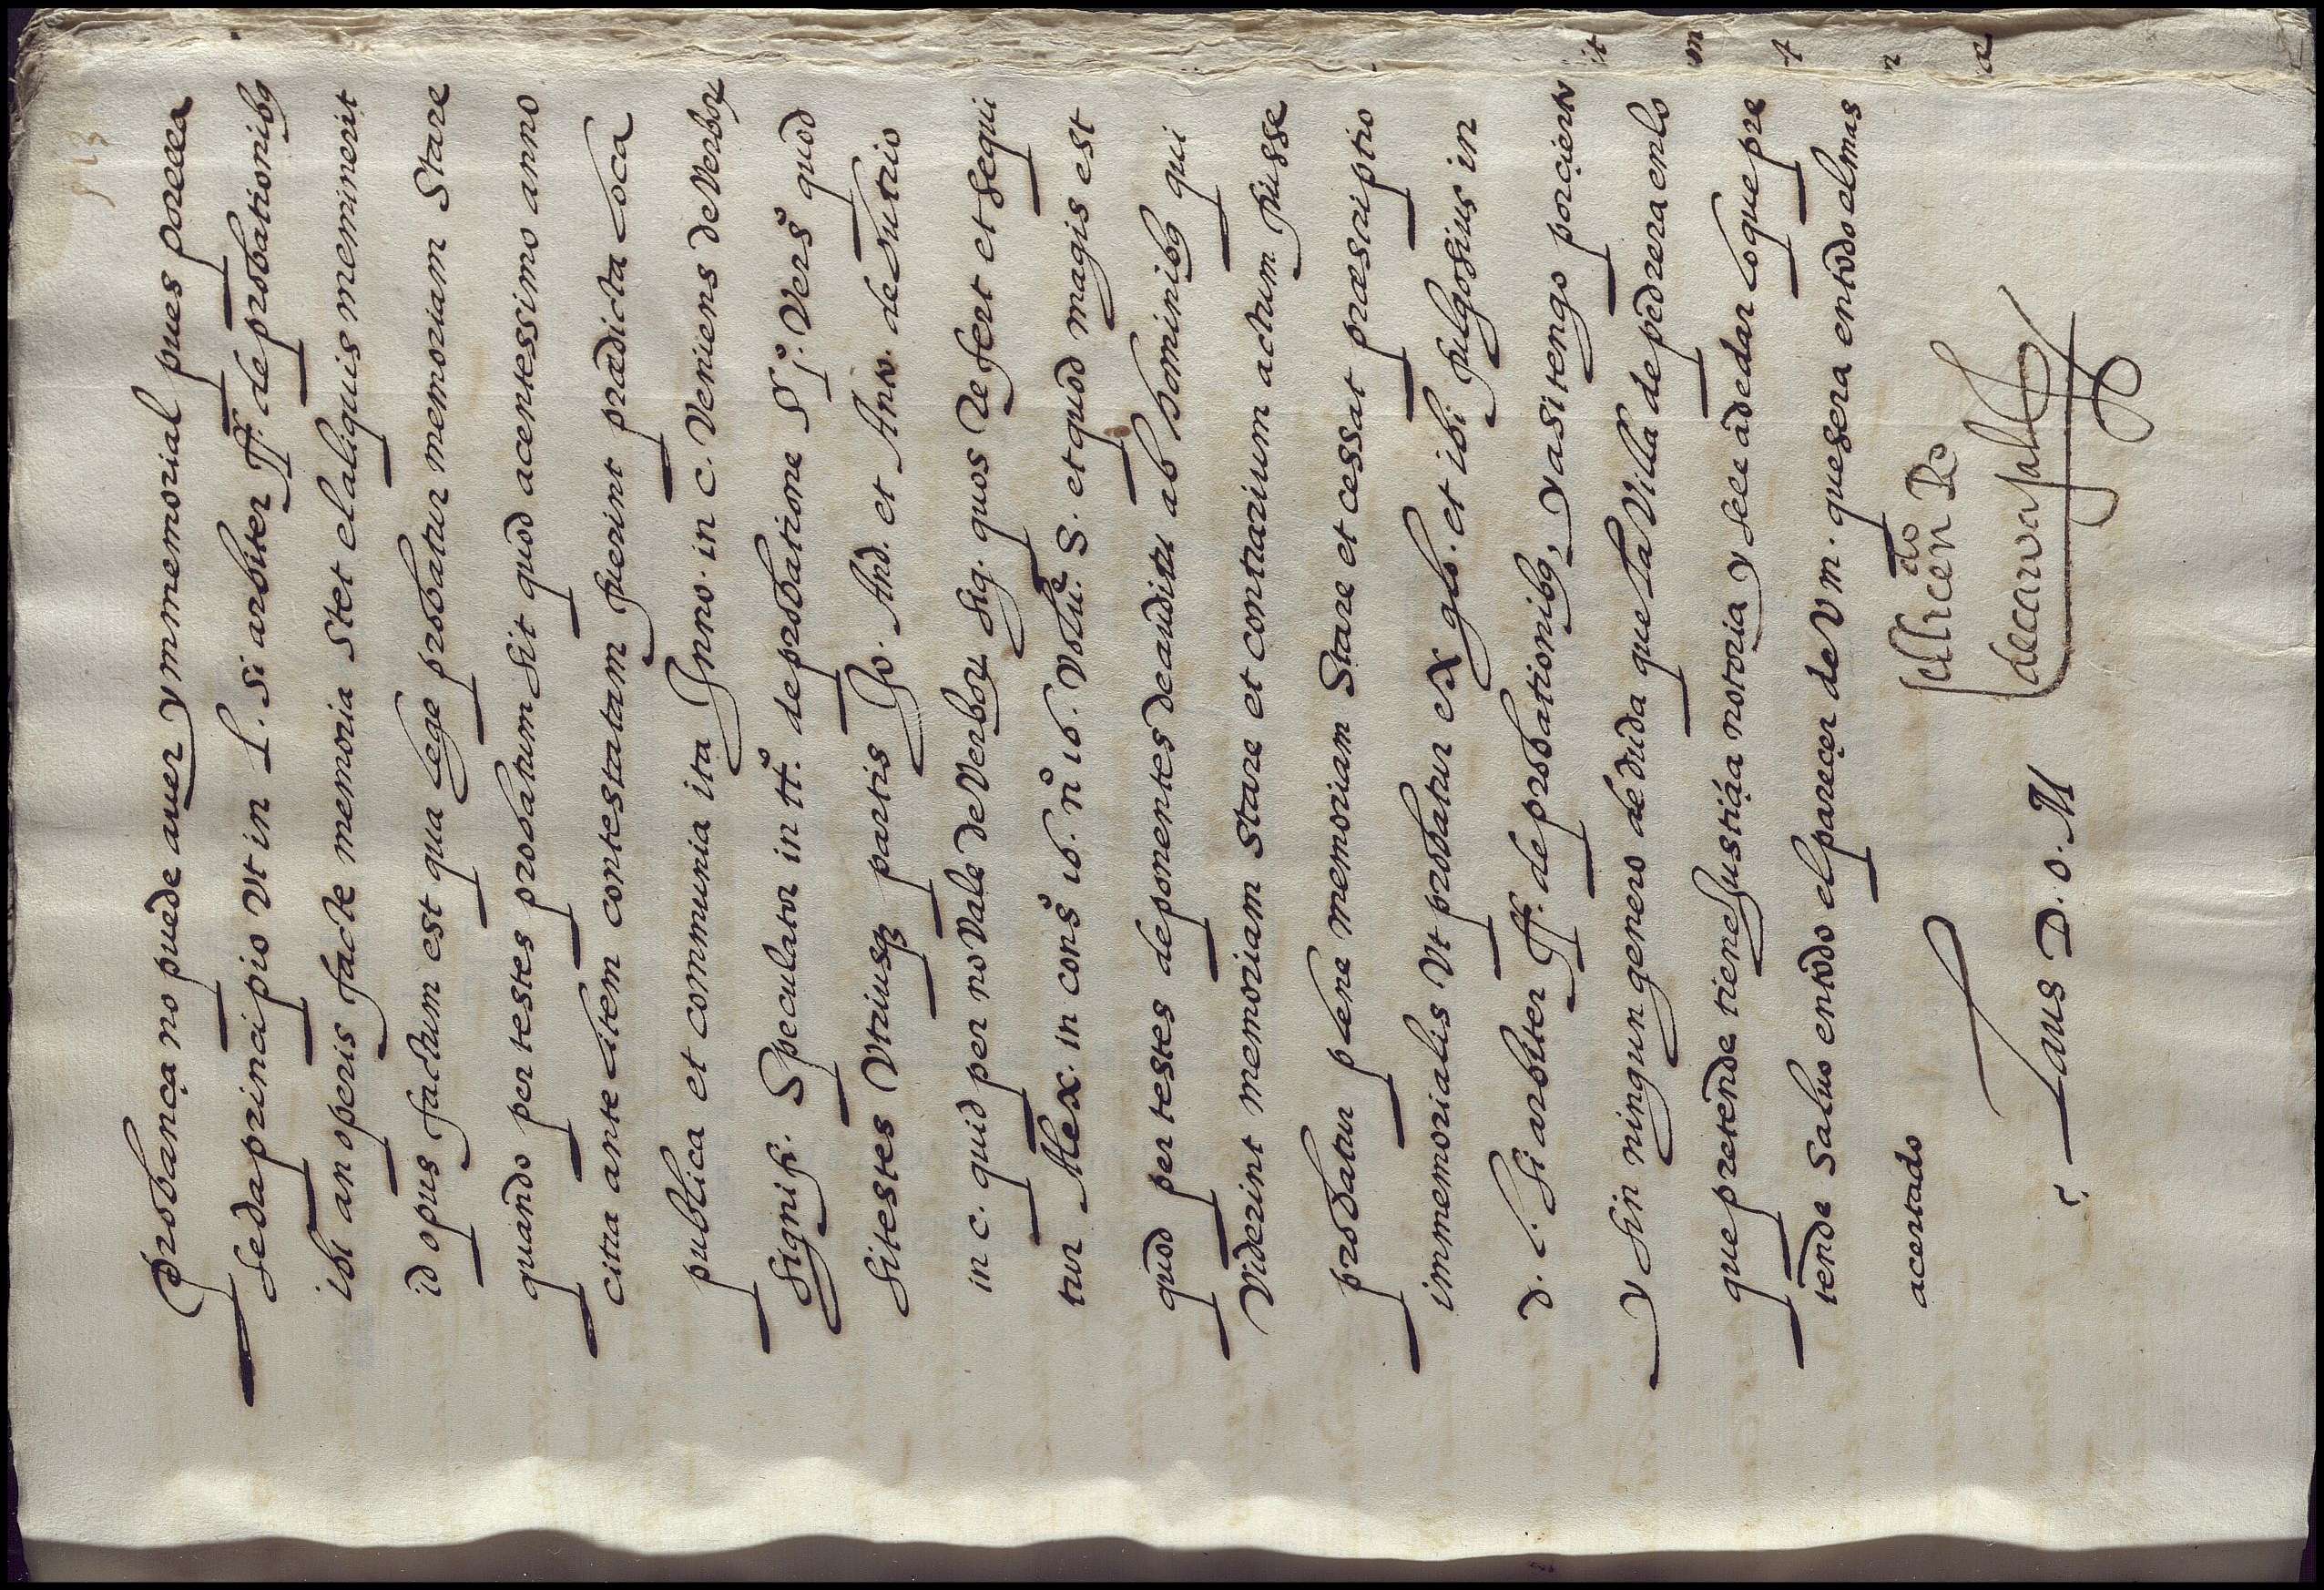 probança no puede aver ymmemorial pues por ella
seda principio Vt in l. si arbiter ff. de probationibq
ibi an operis facte memoria stet el aliquis meminerit
id opus factum est qua lege probatur memoriam stare
quando per testes probatum sit quod acentessimo anno
citra ante litem contestatam fuerint prædicta loca
publica et communia ita Inno. in c. Veniens de Verbor
signifi. Speculator in tt.º de probatione §. j.º Versº quod
si testes Vtriusq partis Jo. And. et Anto. de butrio
in c. quid per no Vale de Verbor sig. quos refert et sequi
tur Alex. in consº 16. nº 16. Volu.e 5. et quod magis est
quod per testes deponentes de auditu ab hominibq qui
Viderint memoriam stare et contrarium actum fuisse
probatur plene memoriam stare et cessat præscriptio
immemorialis Vt probatur ex glo. et ibi fulgosius in
d. l. si arbiter ff. de probationibq, y asi tengo por cierto
y sin ningun genero de duda que la Villa de pedrera en lo
que pretende tiene Justiçia notoria y sele a de dar lo que pre
tende salvo en todo el pareçer de Vm. que sera en todo el mas
acertado
Laus D. o. M
el licen do